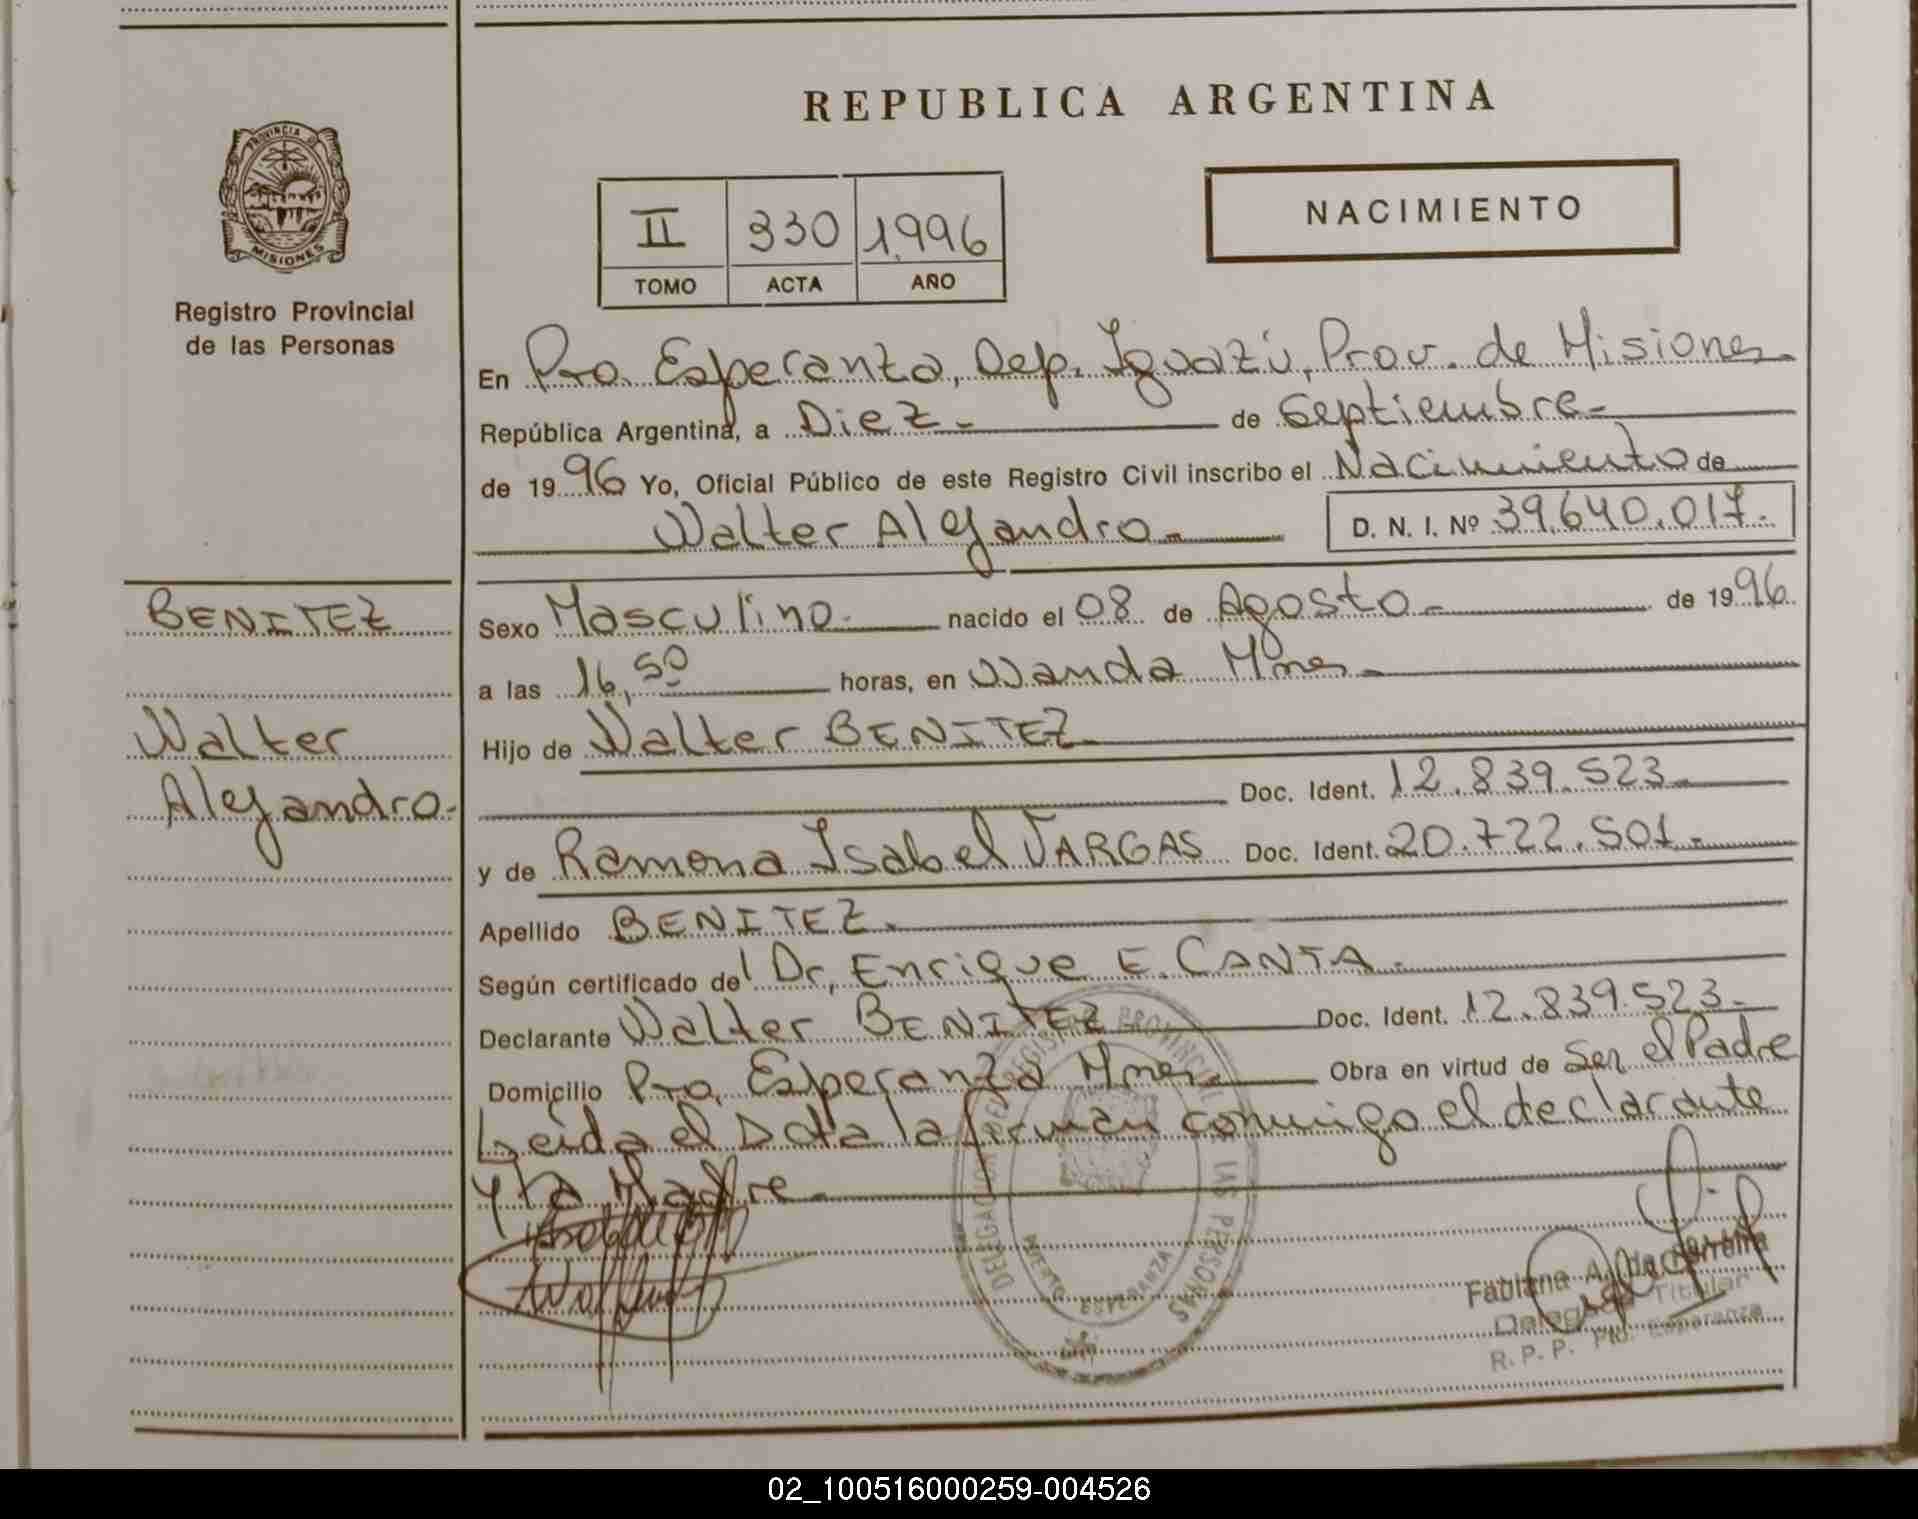 REPUBLICA ARGENTINA
PROVINCIA DE
MISIONES
Registro Provincial
de las Personas
II 330 1.996
TOMO ACTA AÑO
NACIMIENTO
En Pto. Esperanza, Dep. Iguazú, Prov. de Misiones
República Argentina, a Diez.- de Septiembre.-
de 1996 Yo, Oficial Público de este Registro Civil inscribo el Nacimiento de
Walter Alejandro.- D. N. I. Nº 39.640.017.-
BENITEZ
Walter
Alejandro.-
Sexo Masculino.- nacido el 08 de Agosto.- de 1996
a las 16,50 horas, en Wanda Mnes.-
Hijo de Walter BENITEZ.-
Doc. Ident. 12.839.523.-
y de Ramona Isabel VARGAS Doc. Ident. 20.722.501.-
Apellido BENITEZ.-
Según certificado del Dr. Enrique E. CANTA.-
Declarante Walter BENITEZ Doc. Ident. 12.839.523.-
Domicilio Pto. Esperanza Mnes.- Obra en virtud de Ser el Padre
Leída el Acta la firman conmigo el declarante
y la Madre.-
DELEGACION DEL REGISTRO PROVINCIAL DE LAS PERSONAS
PUERTO ESPERANZA
Fabiana A. Da
Delegada Titular
R. P. P. Pto. Esperanza
02_100516000259-004526